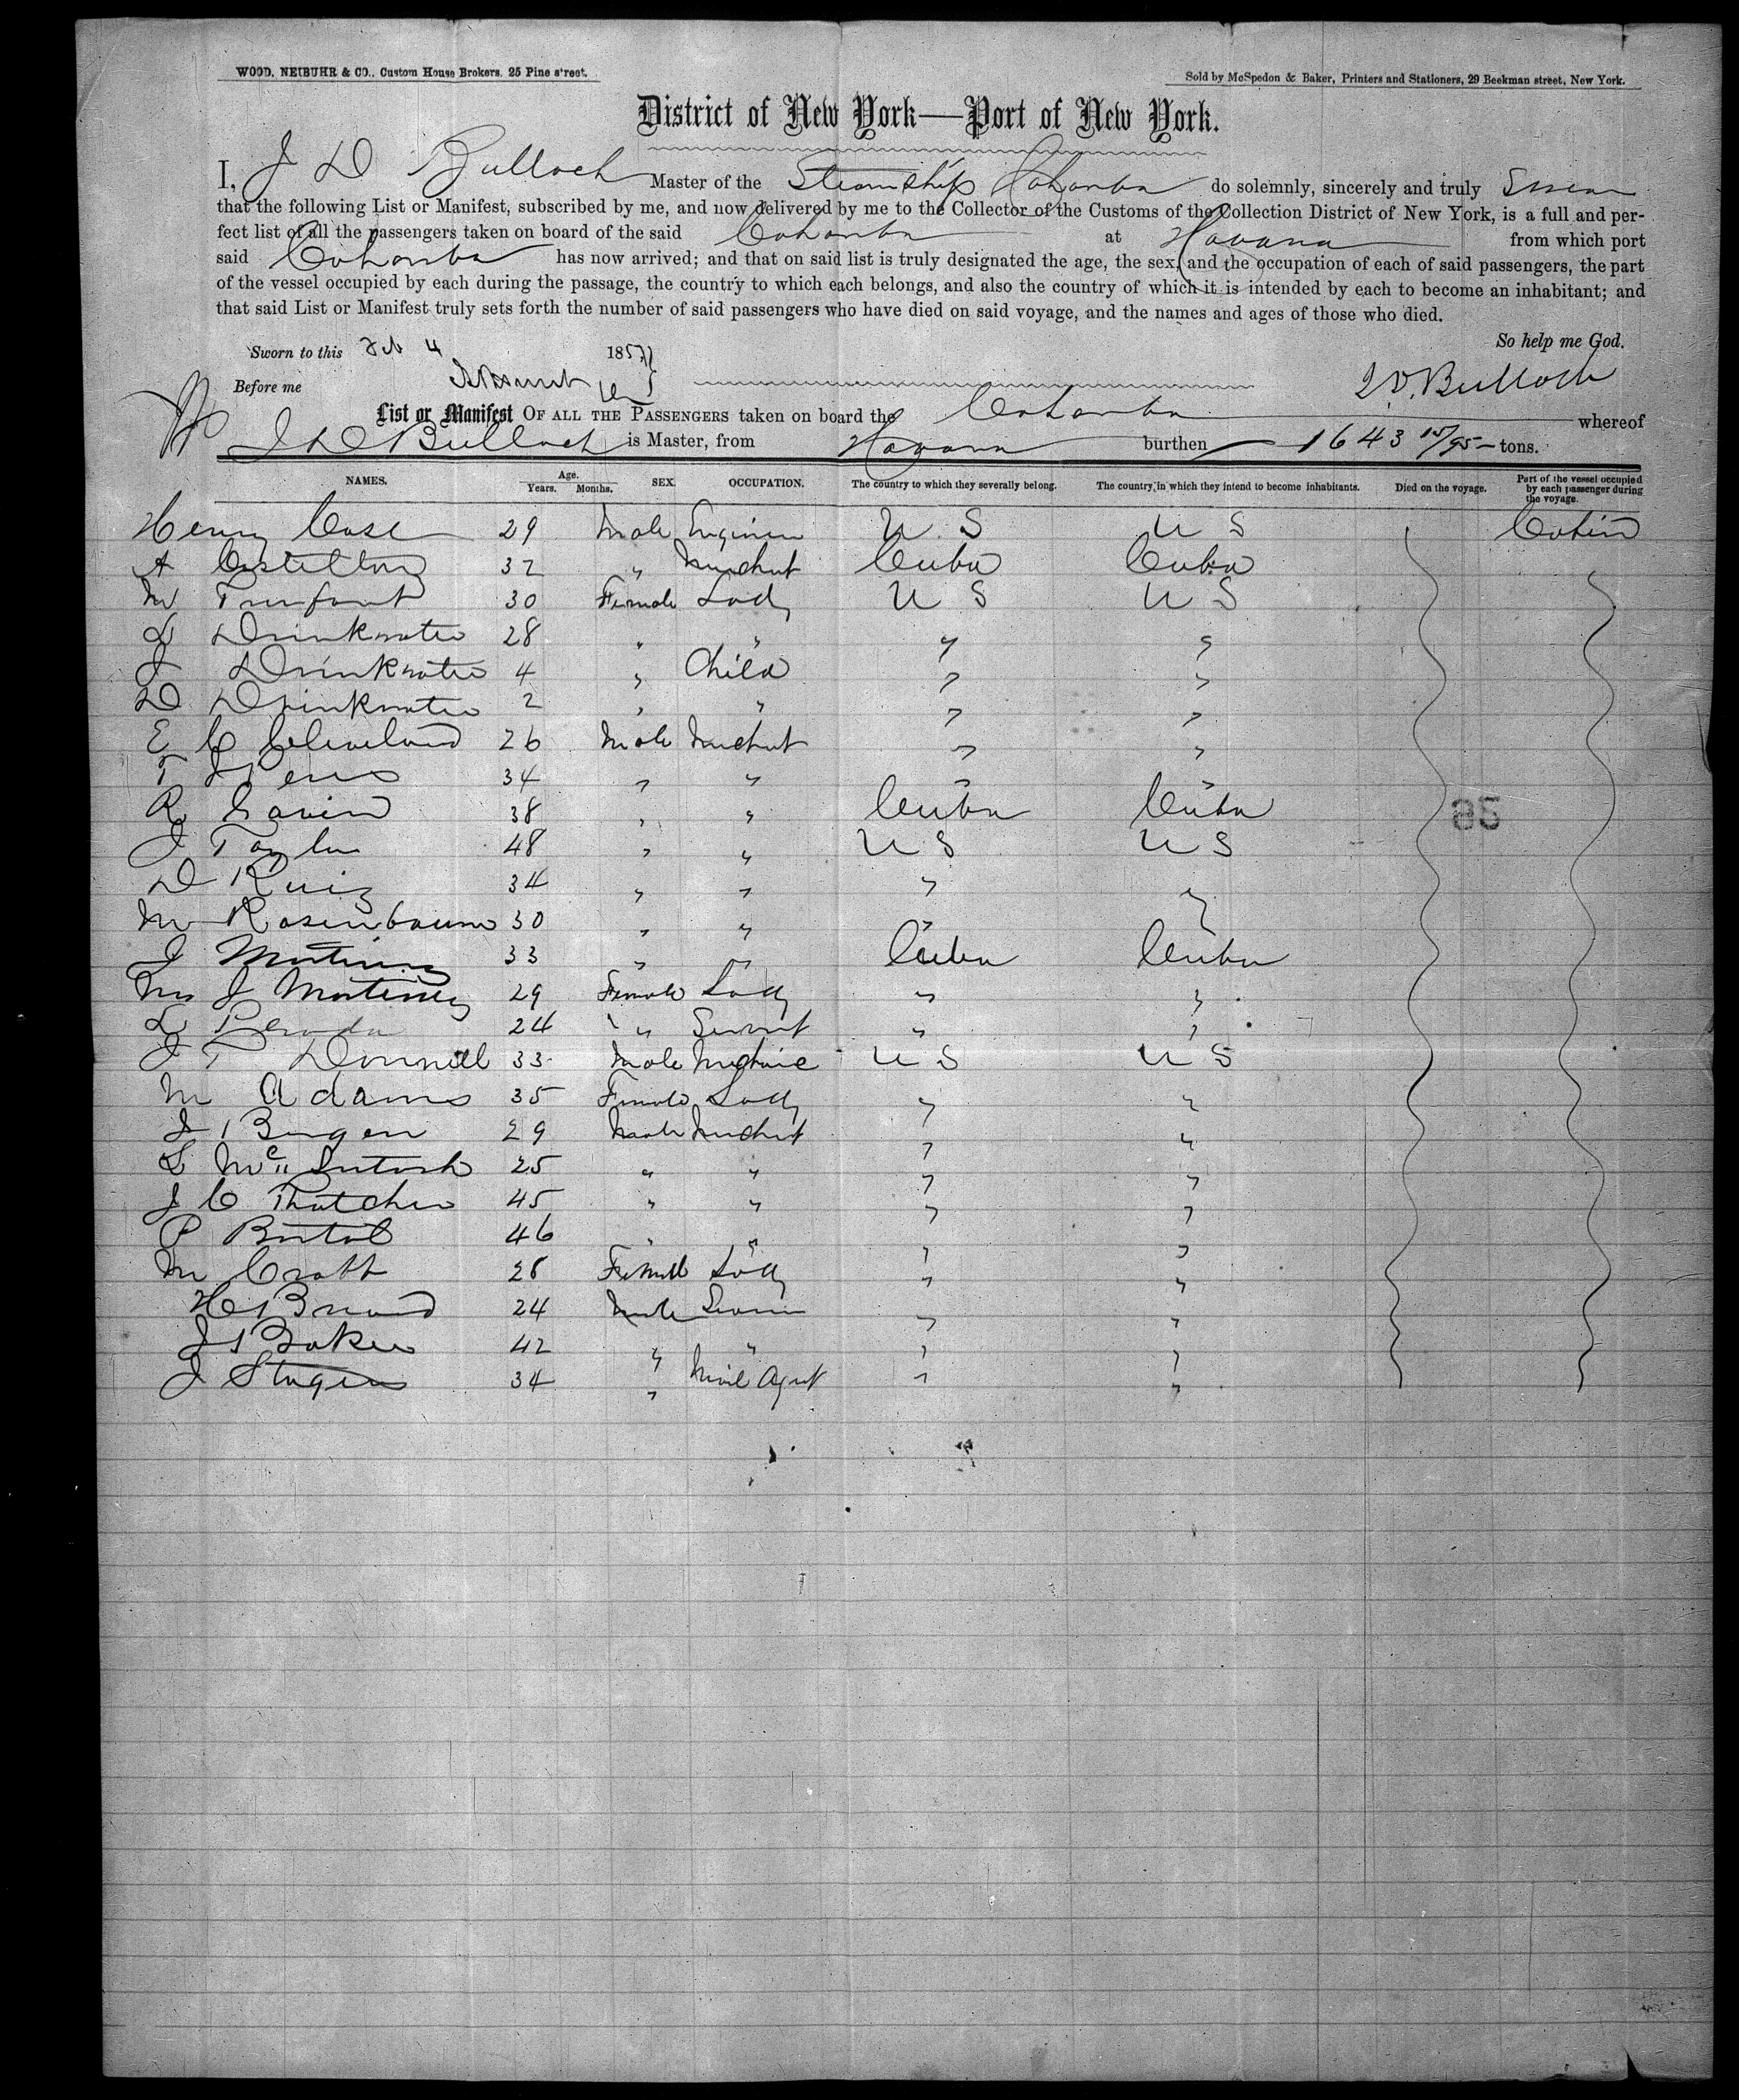 WOOD, NEIBUHR & CO., Custom House Brokers, 25 Pine street.
Sold by McSpedon & Baker, Printers and Stationers, 29 Beekman street, New York.
District of New York—Port of New York.
I, J D Bulloch Master of the Steamship Cahawba do solemnly, sincerely and truly Swear
that the following List or Manifest, subscribed by me, and now delivered by me to the Collector of the Customs of the Collection District of New York, is a full and per-
fect list of all the passengers taken on board of the said Cahawba at Havana from which port
said Cahawba has now arrived; and that on said list is truly designated the age, the sex, and the occupation of each of said passengers, the part
of the vessel occupied by each during the passage, the country to which each belongs, and also the country of which it is intended by each to become an inhabitant; and
that said List or Manifest truly sets forth the number of said passengers who have died on said voyage, and the names and ages of those who died.
So help me God.
Sworn to this Feb 4 1857
Before me
J D. Bulloch
List or Manifest OF ALL THE PASSENGERS taken on board the Cahawba whereof
J D Bulloch is Master, from Havana burthen 1643 15/95 tons.
NAMES. Age. Years. Months. SEX. OCCUPATION. The country to which they severally belong. The country in which they intend to become inhabitants. Died on the voyage. Part of the vessel occupied by each passenger during the voyage.
Henry Case 29 Male Engineer U S U S Cabin
A 32 " Merchant Cuba Cuba
M Trufant 30 Female Lady U S U S
L Drinkwater 28 " " " "
J Drinkwater 4 " Child " "
D Drinkwater 2 " " " "
E C Cleveland 26 Male Merchant " "
T 34 " " " "
R Gavin 38 " " Cuba Cuba
J Taylor 48 " " U S U S
D Ruiz 34 " " " "
M Rosenbaum 30 " " " "
J Martinez 33 " " Cuba Cuba
Mrs J Martinez 29 Female Lady " "
L 24 " Servant " "
J T Donnell 33 Male Mechanic U S U S
M Adams 35 Female Lady " "
J Bergen 29 Male Merchant " "
L McIntosh 25 " " " "
J C Thatcher 45 " " " "
P 46 " " " "
M 28 Female Lady " "
H 24 Male " "
J S Baker 42 " " " "
J 34 " Mail Agent " "
95